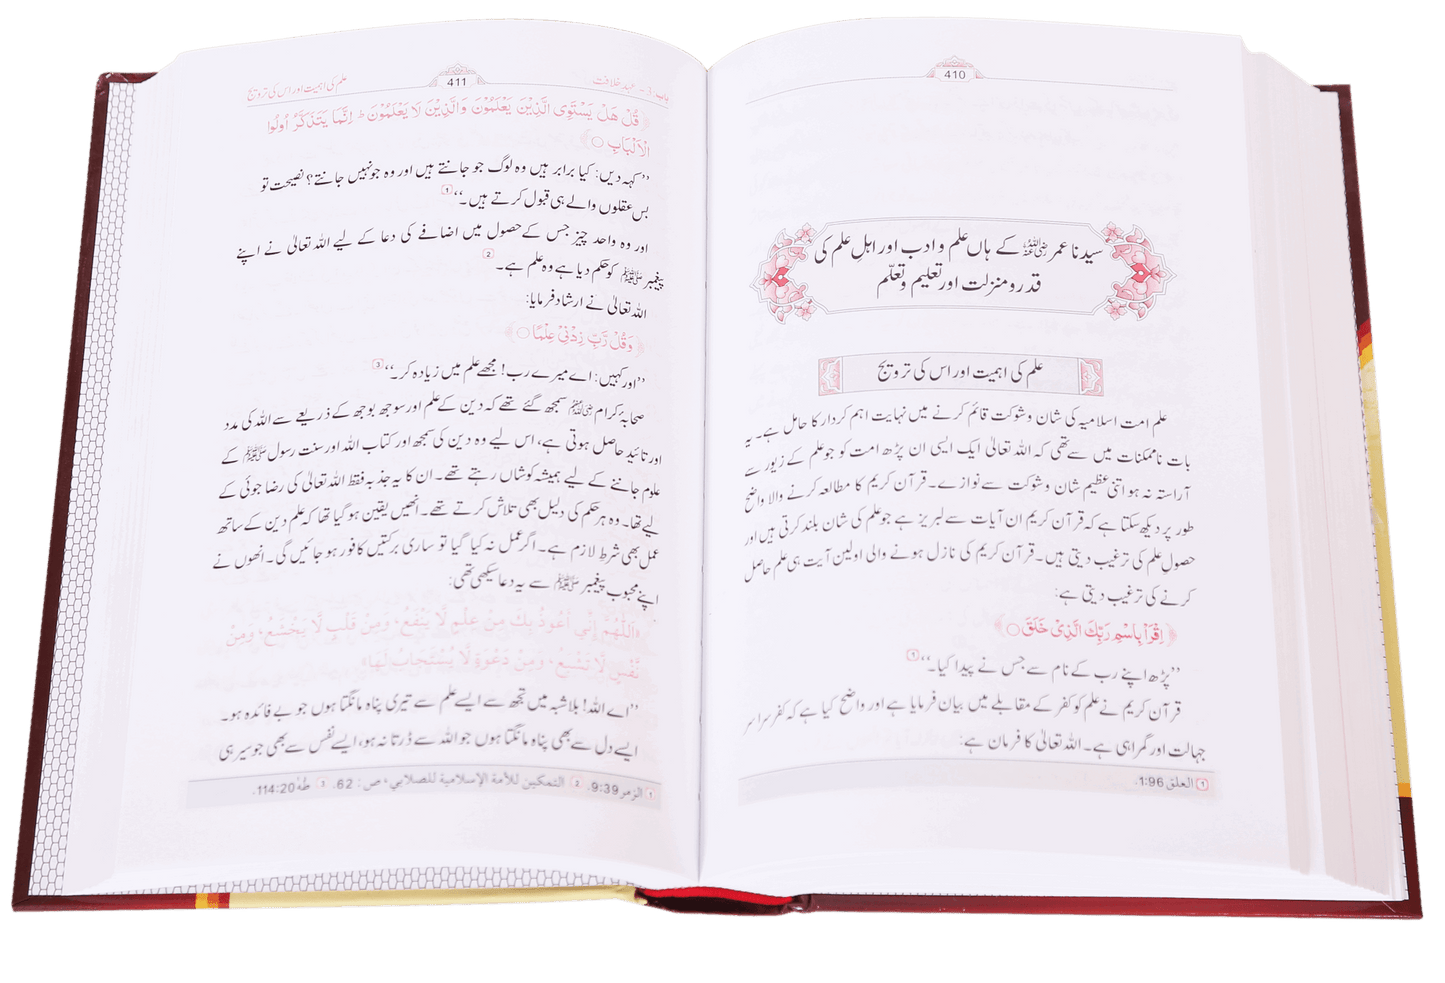 410
سیدنا عمر رضی اللہ عنہ کے ہاں علم و ادب اور اہلِ علم کی
قدر و منزلت اور تعلیم و تعلّم
علم کی اہمیت اور اس کی ترویج
علم امت اسلامیہ کی شان و شوکت قائم کرنے میں نہایت اہم کردار کا حامل ہے۔ یہ
بات ناممکنات میں سے تھی کہ اللہ تعالیٰ ایک ایسی ان پڑھ امت کو جو علم کے زیور سے
آراستہ نہ ہو اتنی عظیم شان و شوکت سے نوازے۔ قرآن کریم کا مطالعہ کرنے والا واضح
طور پر دیکھ سکتا ہے کہ قرآن کریم ان آیات سے لبریز ہے جو علم کی شان بلند کرتی ہیں اور
حصولِ علم کی ترغیب دیتی ہیں۔ قرآن کریم کی نازل ہونے والی اولین آیت ہی علم حاصل
کرنے کی ترغیب دیتی ہے:
﴿ اِقْرَاْ بِاسْمِ رَبِّكَ الَّذِيْ خَلَقَ ○ ﴾
’’پڑھ اپنے رب کے نام سے جس نے پیدا کیا۔‘‘ ①
قرآن کریم نے علم کو کفر کے مقابلے میں بیان فرمایا ہے اور واضح کیا ہے کہ کفر سراسر
جہالت اور گمراہی ہے۔ اللہ تعالیٰ کا فرمان ہے:
① العلق 1:96.
باب:3 - عہد خلافت 411 علم کی اہمیت اور اس کی ترویج
﴿ قُلْ هَلْ يَسْتَوِي الَّذِيْنَ يَعْلَمُوْنَ وَالَّذِيْنَ لَا يَعْلَمُوْنَ ط اِنَّمَا يَتَذَكَّرُ اُولُوا
الْاَلْبَابِ ○ ﴾
’’کہہ دیں: کیا برابر ہیں وہ لوگ جو جانتے ہیں اور وہ جو نہیں جانتے؟ نصیحت تو
بس عقلوں والے ہی قبول کرتے ہیں۔‘‘ ①
اور وہ واحد چیز جس کے حصول میں اضافے کی دعا کے لیے اللہ تعالیٰ نے اپنے
پیغمبر ﷺ کو حکم دیا ہے وہ علم ہے۔ ②
اللہ تعالیٰ نے ارشاد فرمایا:
﴿ وَقُلْ رَّبِّ زِدْنِيْ عِلْمًا ○ ﴾
’’اور کہیں: اے میرے رب! مجھے علم میں زیادہ کر۔‘‘ ③
صحابۂ کرام رضی اللہ عنہم سمجھ گئے تھے کہ دین کے علم اور سوجھ بوجھ کے ذریعے سے اللہ کی مدد
اور تائید حاصل ہوتی ہے، اس لیے وہ دین کی سمجھ اور کتاب اللہ اور سنت رسول ﷺ کے
علوم جاننے کے لیے ہمیشہ کوشاں رہتے تھے۔ ان کا یہ جذبہ فقط اللہ تعالیٰ کی رضا جوئی کے
لیے تھا۔ وہ ہر حکم کی دلیل بھی تلاش کرتے تھے۔ انھیں یقین ہو گیا تھا کہ علم دین کے ساتھ
عمل بھی شرطِ لازم ہے۔ اگر عمل نہ کیا گیا تو ساری برکتیں کافور ہو جائیں گی۔ انھوں نے
اپنے محبوب پیغمبر ﷺ سے یہ دعا سیکھی تھی:
«اَللّٰهُمَّ إِنِّي أَعُوذُ بِكَ مِنْ عِلْمٍ لَّا يَنْفَعُ، وَمِنْ قَلْبٍ لَّا يَخْشَعُ، وَمِنْ
نَفْسٍ لَّا تَشْبَعُ، وَمِنْ دَعْوَةٍ لَّا يُسْتَجَابُ لَهَا»
’’اے اللہ! بلاشبہ میں تجھ سے ایسے علم سے تیری پناہ مانگتا ہوں جو بے فائدہ ہو۔
ایسے دل سے بھی پناہ مانگتا ہوں جو اللہ سے ڈرتا نہ ہو، ایسے نفس سے بھی جو سیر ہی
① الزمر 9:39. ② التمكين للأمة الإسلامية للصلابي، ص: 62. ③ طٰهٰ 114:20.